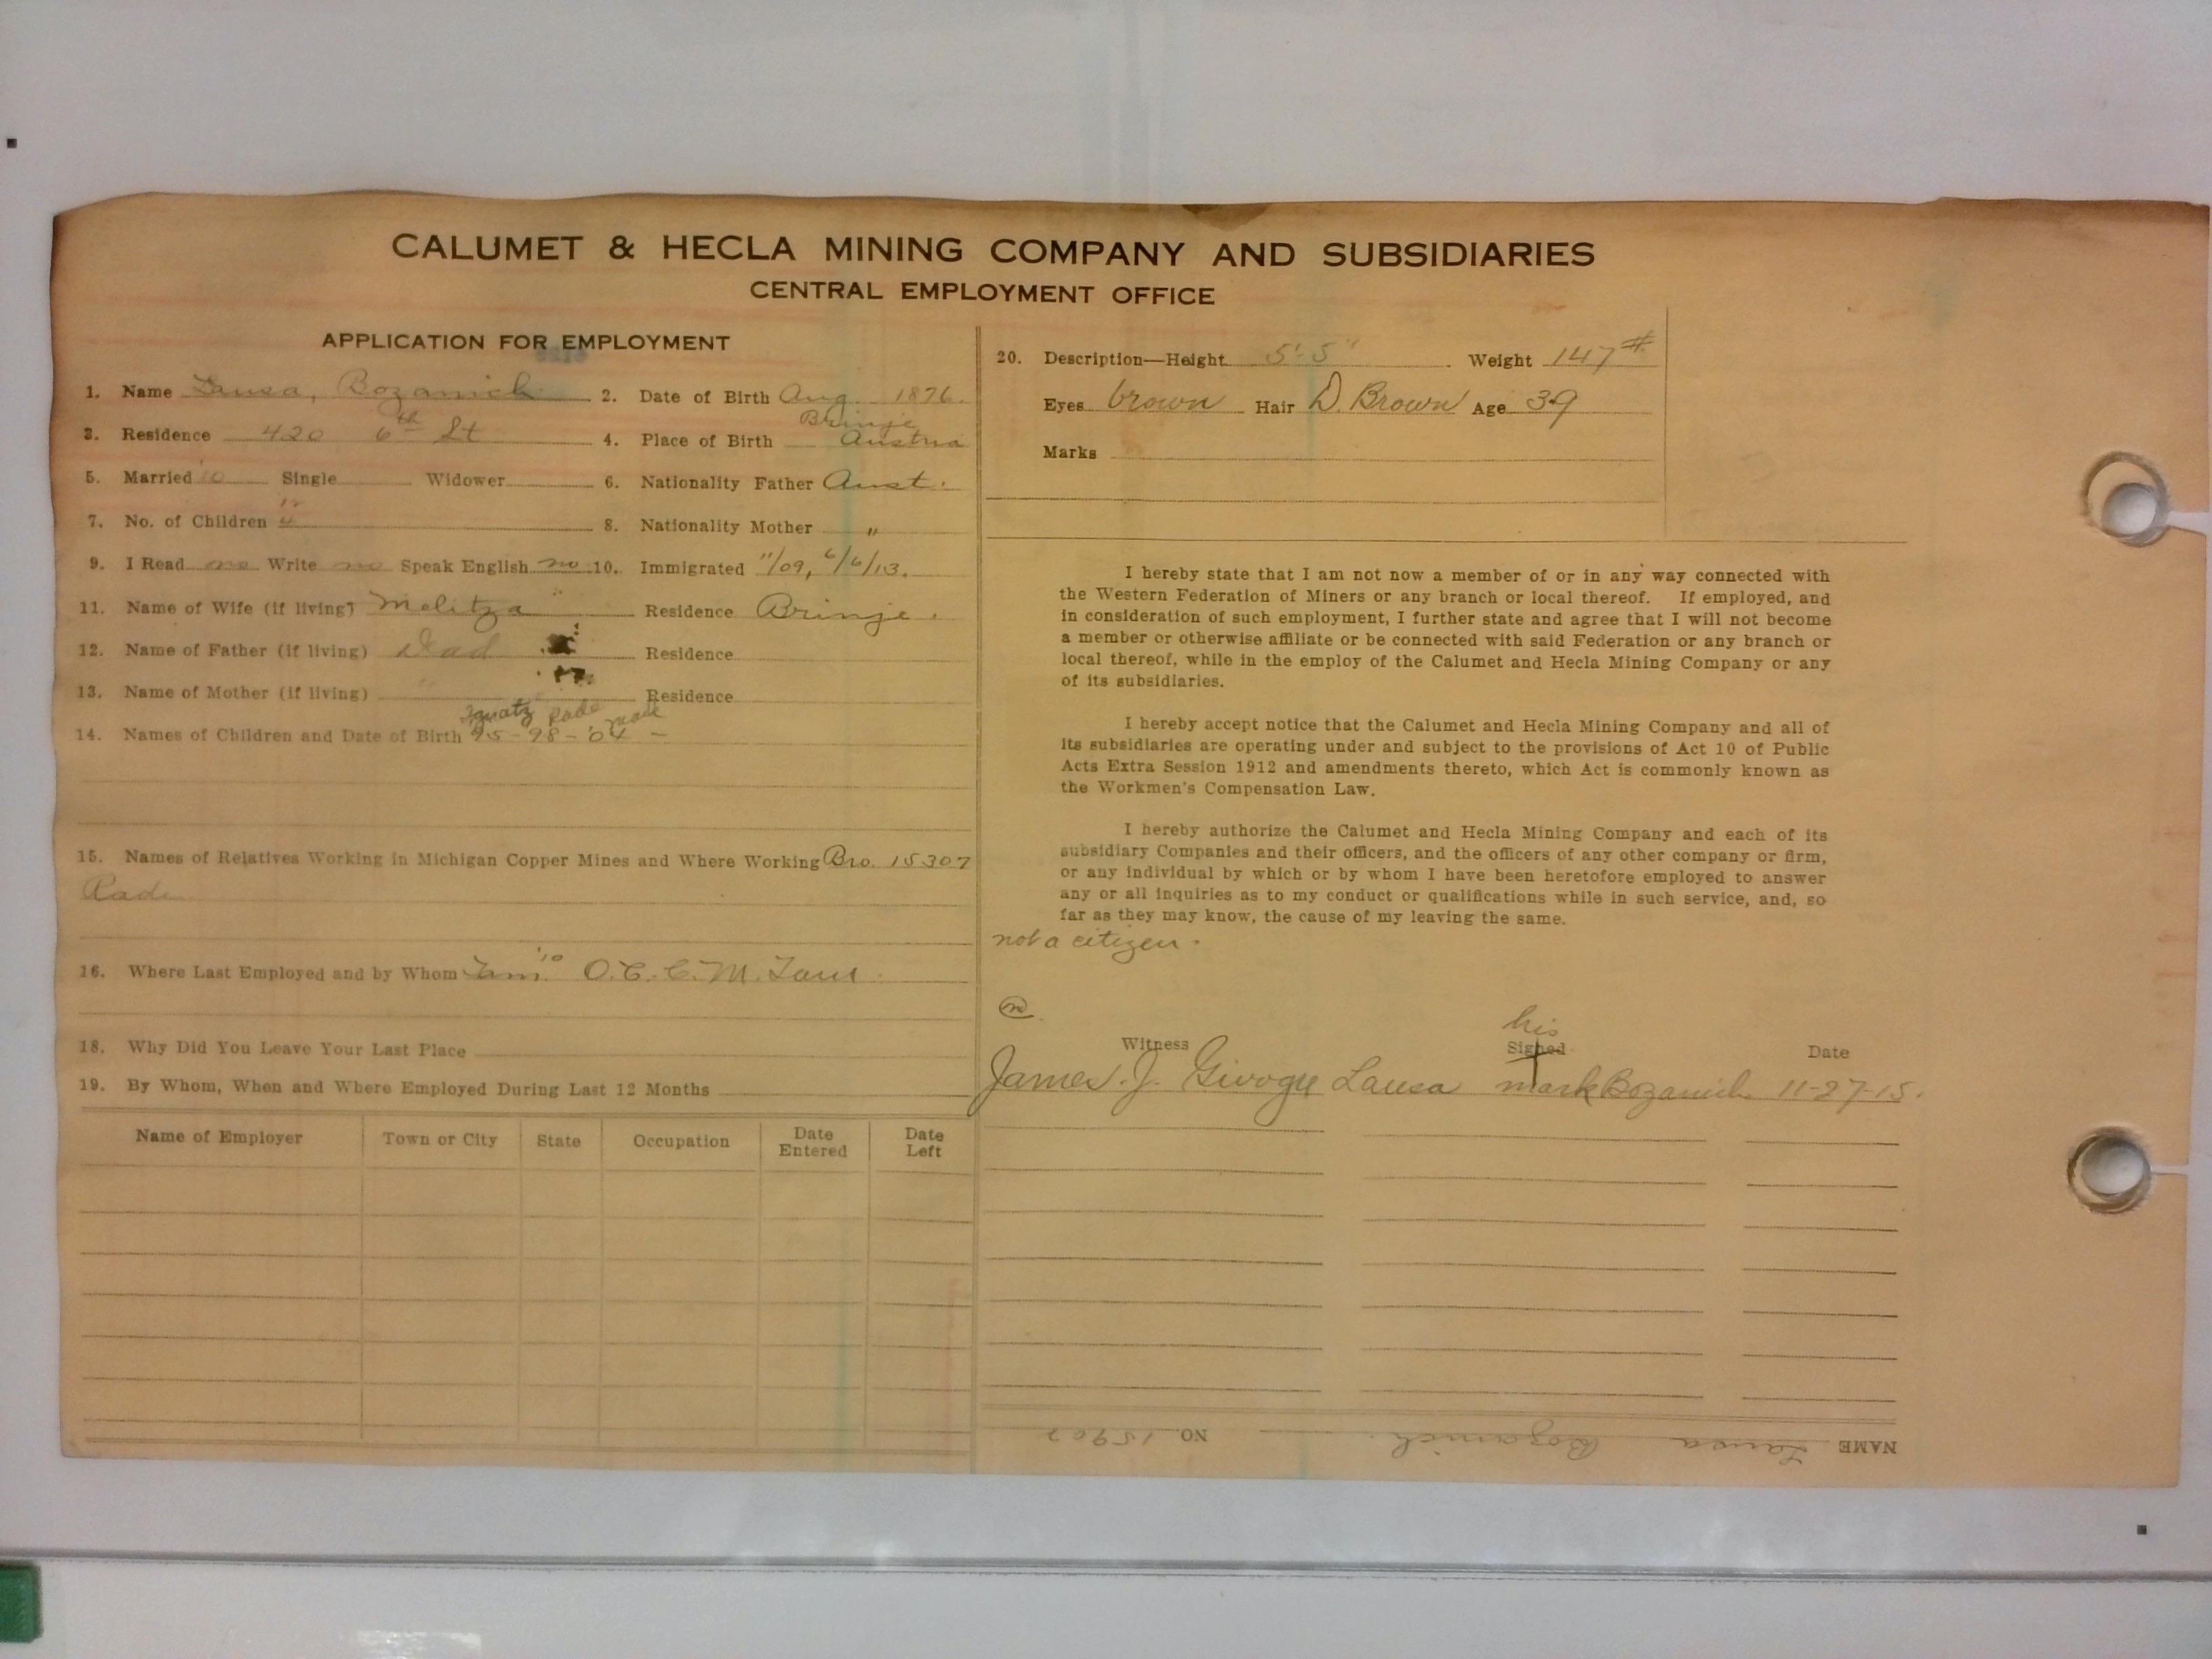 CALUMET & HECLA MINING COMPANY AND SUBSIDIARIES
CENTRAL EMPLOYMENT OFFICE
APPLICATION FOR EMPLOYMENT
1. Name Lausa, Bozanich 2. Date of Birth Aug. 1876.
3. Residence 420 6th St 4. Place of Birth Brinje Austria
5. Married '10 Single Widower 6. Nationality Father Aust.
7. No. of Children 8. Nationality Mother "
9. I Read no Write no Speak English no 10. Immigrated 11/09, 6/6/13.
11. Name of Wife (if living) Melitza Residence Brinje.
12. Name of Father (if living) Dad Residence
13. Name of Mother (if living) " Residence
Ignatz Rade
14. Names of Children and Date of Birth 95-98-'04-
15. Names of Relatives Working in Michigan Copper Mines and Where Working Bro. 15307
Rade
16. Where Last Employed and by Whom '10 O.C. C.M.
18. Why Did You Leave Your Last Place
19. By Whom, When and Where Employed During Last 12 Months
Name of Employer Town or City State Occupation Date Entered Date Left
20. Description—Height 5'-5" Weight 147#
Eyes brown Hair D. Brown Age 39
Marks
I hereby state that I am not now a member of or in any way connected with
the Western Federation of Miners or any branch or local thereof. If employed, and
in consideration of such employment, I further state and agree that I will not become
a member or otherwise affiliate or be connected with said Federation or any branch or
local thereof, while in the employ of the Calumet and Hecla Mining Company or any
of its subsidiaries.
I hereby accept notice that the Calumet and Hecla Mining Company and all of
its subsidiaries are operating under and subject to the provisions of Act 10 of Public
Acts Extra Session 1912 and amendments thereto, which Act is commonly known as
the Workmen's Compensation Law.
I hereby authorize the Calumet and Hecla Mining Company and each of its
subsidiary Companies and their officers, and the officers of any other company or firm,
or any individual by which or by whom I have been heretofore employed to answer
any or all inquiries as to my conduct or qualifications while in such service, and, so
far as they may know, the cause of my leaving the same.
not a citizen.
his
Witness Signed Date
James. J. Lausa mark Bozanich 11-27-15.
NAME Lausa Bozanich. NO. 15902